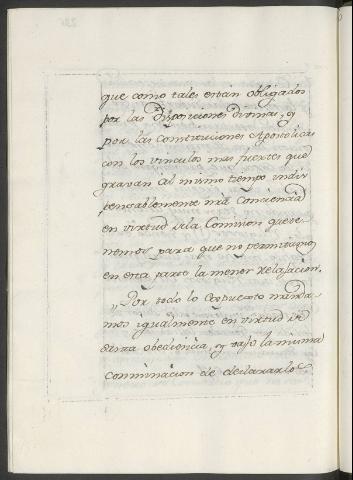 que como tales estan obligados
por las Disposiciones Divinas, y
por las Constituciones Apostolicas
con los vinculos mas fuertes que
gravan al mismo tiempo indis
pensablemente nrã Conciencia
en virtud de la Comision que te
nemos para que no permitamos
en esta parte la menor relajacion.
„Por todo lo expuesto manda
mos igualmente en virtud de
santa obediencia, y bajo la misma
conminacion de declararlos